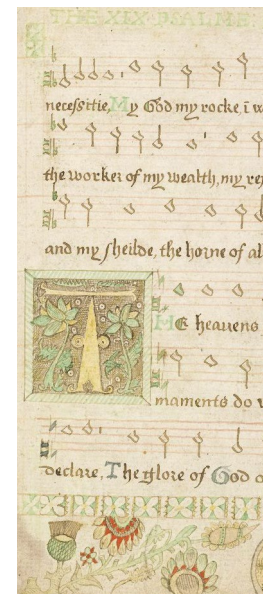 THE XIX PSALME:
necessitie, My God my rocke, ī w
the worker of my wealth, my re
and my sheilde, the horne of al
THE heavens
maments do v
declare, The glore of God o